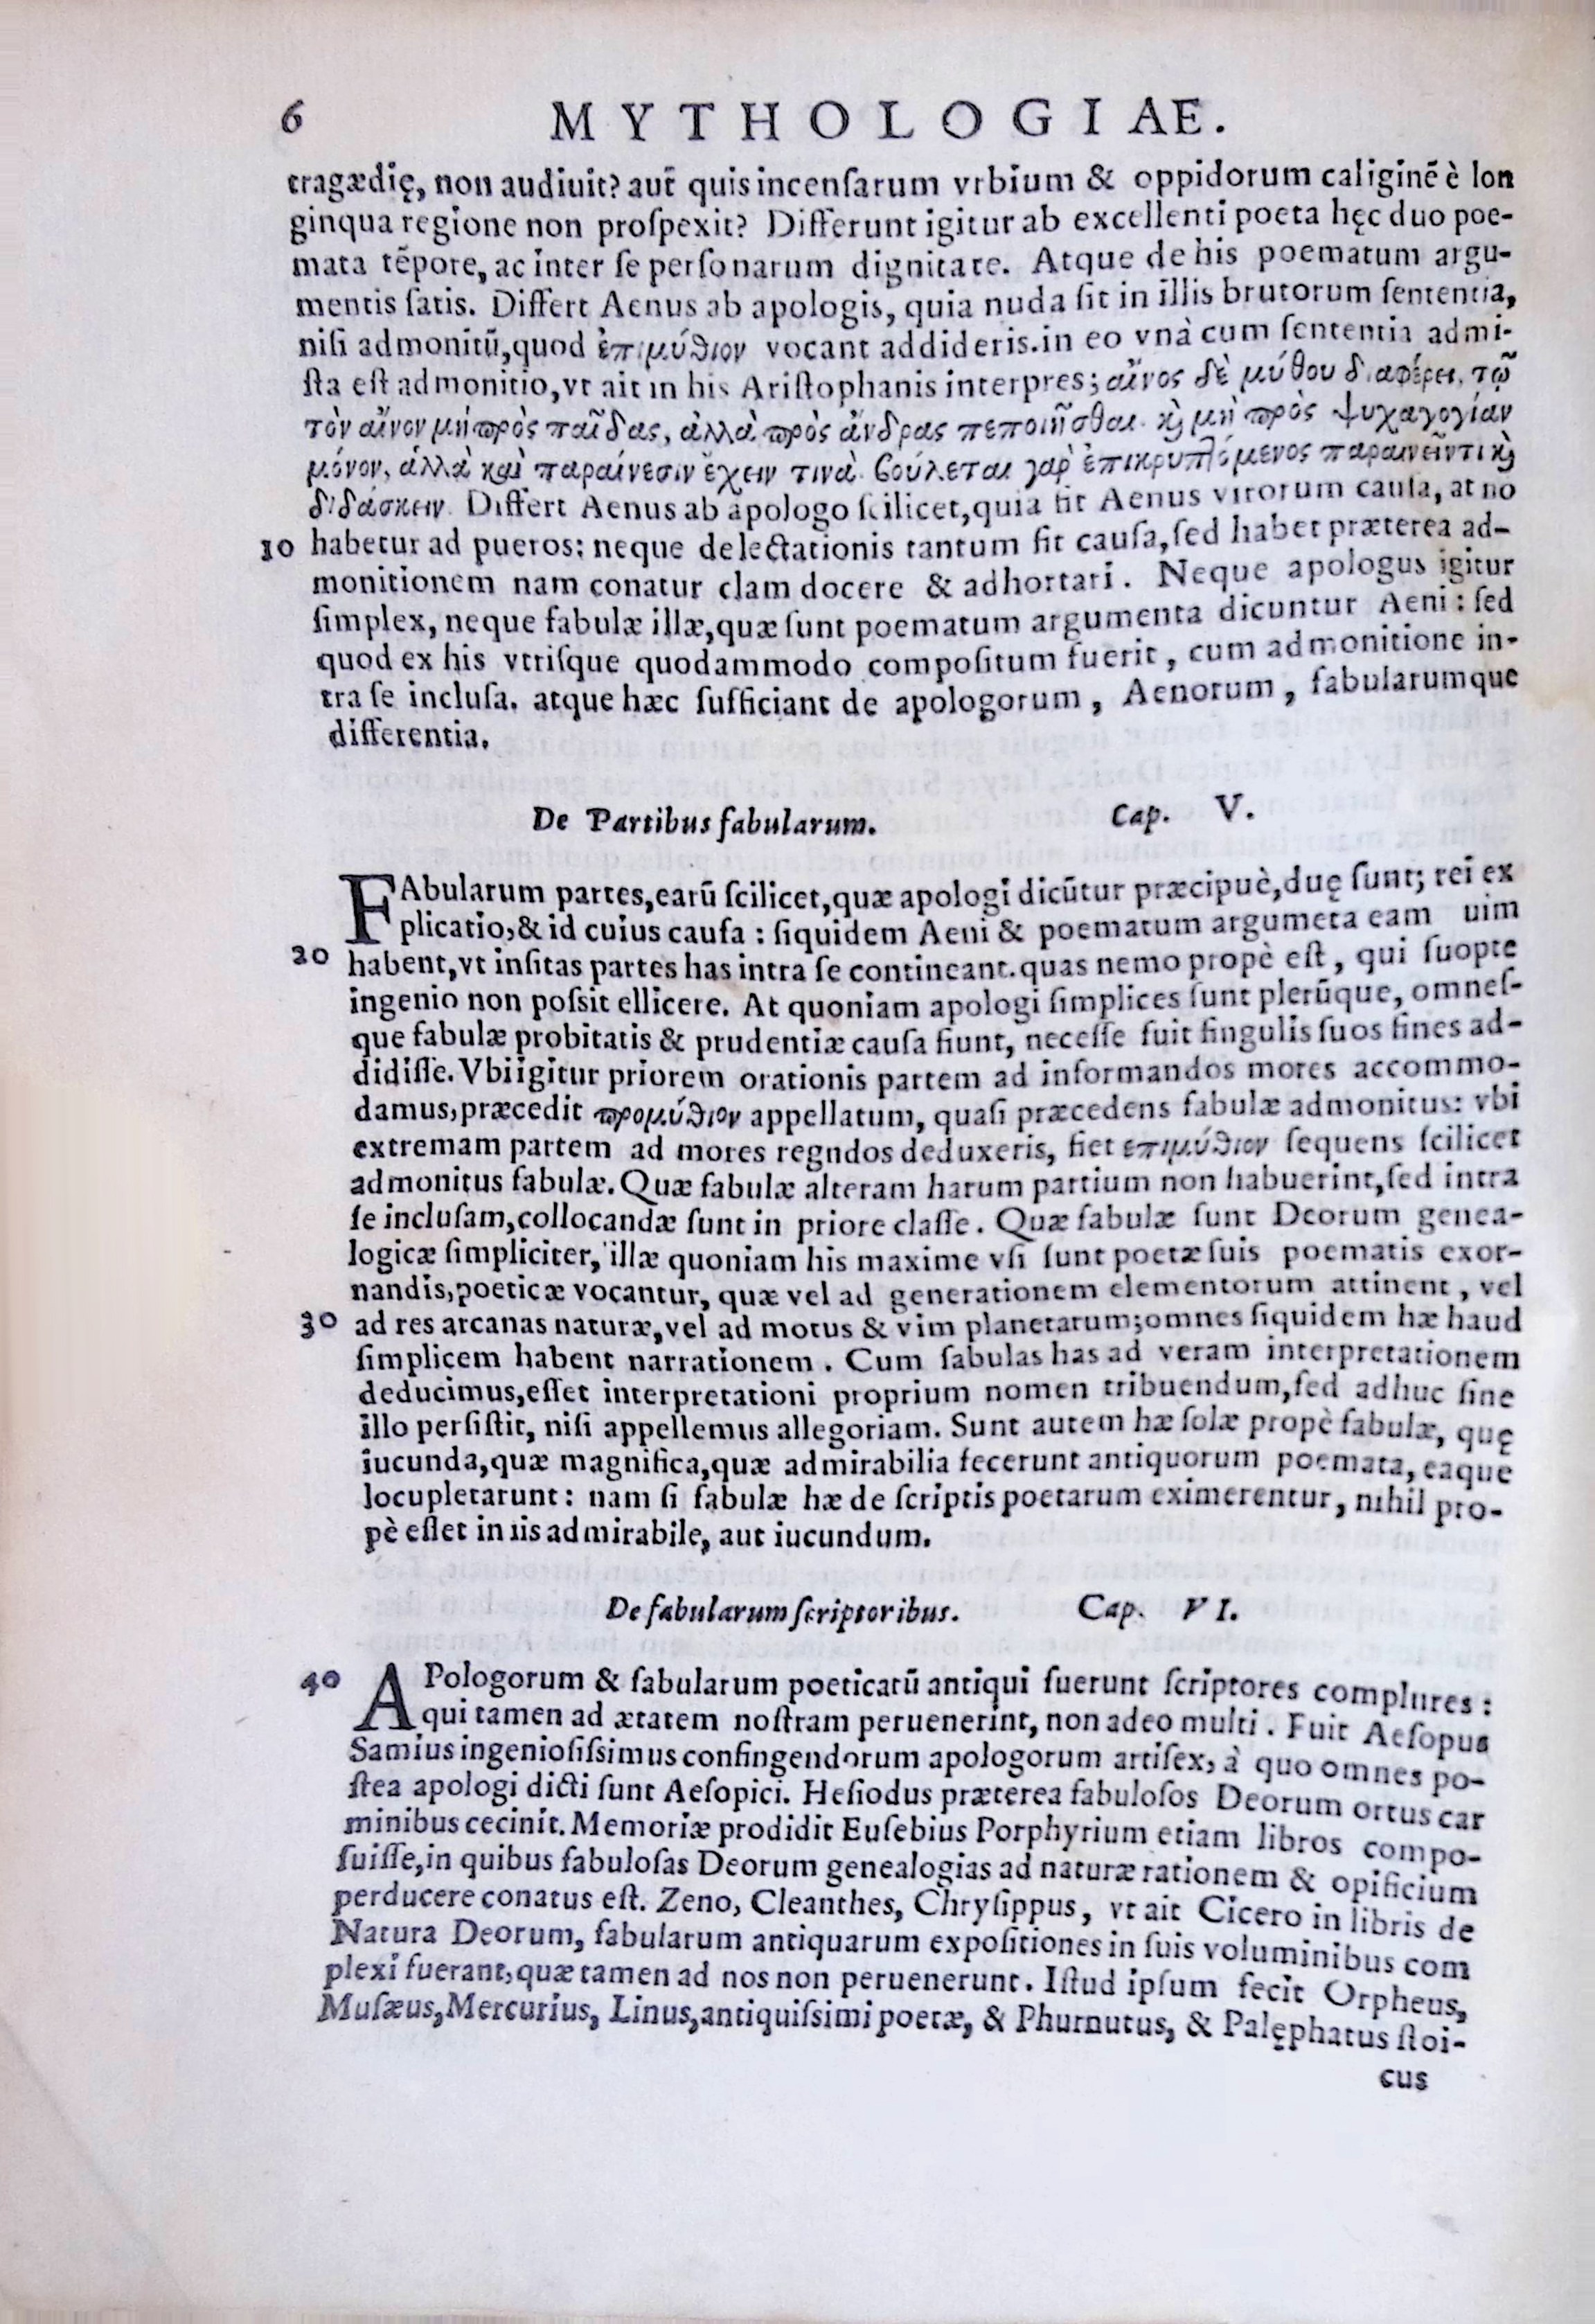 6 MYTHOLOGIAE.
tragædię, non audiuit? aut̃ quis incenſarum vrbium & oppidorum caliginẽ è lon
ginqua regione non proſpexit? Differunt igitur ab excellenti poeta hęc duo poe-
mata tẽpore, ac inter ſe perſonarum dignitate. Atque de his poematum argu-
mentis ſatis. Differt Aenus ab apologis, quia nuda ſit in illis brutorum ſententia,
niſi admonitũ, quod ἐπιμύθιον vocant addideris. in eo vnà cum ſententia admi-
ſta eſt admonitio, vt ait in his Ariſtophanis interpres; αἶνος δὲ μύθου διαφέρει, τῷ
τὸν αἶνον μὴ πρὸς παῖδας, ἀλλὰ πρὸς ἄνδρας πεποιῆσθαι. ϗ μὴ πρὸς ψυχαγογίαν
μόνον, ἀλλὰ καὶ παραίνεσιν ἔχειν τινὰ. βούλεται γὰρ ἐπικρυπτόμενος παραινεῖν τι ϗ
διδάσκειν. Differt Aenus ab apologo ſcilicet, quia fit Aenus virorum cauſa, at no
10 habetur ad pueros: neque delectationis tantum fit cauſa, ſed habet præterea ad-
monitionem nam conatur clam docere & adhortari. Neque apologus igitur
ſimplex, neque fabulæ illæ, quæ ſunt poematum argumenta dicuntur Aeni: ſed
quod ex his vtriſque quodammodo compoſitum fuerit, cum admonitione in-
tra ſe incluſa. atque hæc ſufficiant de apologorum, Aenorum, fabularumque
differentia.
De Partibus fabularum. Cap. V.
FAbularum partes, earũ ſcilicet, quæ apologi dicũtur præcipuè, duę ſunt; rei ex
plicatio, & id cuius cauſa: ſiquidem Aeni & poematum argumeta eam uim
20 habent, vt inſitas partes has intra ſe contineant. quas nemo propè eſt, qui ſuopte
ingenio non poſsit ellicere. At quoniam apologi ſimplices ſunt plerũque, omneſ-
que fabulæ probitatis & prudentiæ cauſa fiunt, neceſſe fuit ſingulis ſuos fines ad-
didiſſe. Vbi igitur priorem orationis partem ad informandos mores accommo-
damus, præcedit προμύθιον appellatum, quaſi præcedens fabulæ admonitus: vbi
extremam partem ad mores regndos deduxeris, fiet επιμύθιον ſequens ſcilicet
admonitus fabulæ. Quæ fabulæ alteram harum partium non habuerint, ſed intra
ſe incluſam, collocandæ ſunt in priore claſſe. Quæ fabulæ ſunt Deorum genea-
logicæ ſimpliciter, illæ quoniam his maxime vſi ſunt poetæ ſuis poematis exor-
nandis, poeticæ vocantur, quæ vel ad generationem elementorum attinent, vel
30 ad res arcanas naturæ, vel ad motus & vim planetarum; omnes ſiquidem hæ haud
ſimplicem habent narrationem. Cum fabulas has ad veram interpretationem
deducimus, eſſet interpretationi proprium nomen tribuendum, ſed adhuc ſine
illo perſiſtit, niſi appellemus allegoriam. Sunt autem hæ ſolæ propè fabulæ, quę
iucunda, quæ magnifica, quæ admirabilia fecerunt antiquorum poemata, eaque
locupletarunt: nam ſi fabulæ hæ de ſcriptis poetarum eximerentur, nihil pro-
pè eſſet in iis admirabile, aut iucundum.
De fabularum ſcriptoribus. Cap. VI.
40 APologorum & fabularum poeticarũ antiqui fuerunt ſcriptores complures:
qui tamen ad ætatem noſtram peruenerint, non adeo multi. Fuit Aeſopus
Samius ingenioſiſsimus confingendorum apologorum artifex, à quo omnes po-
ſtea apologi dicti ſunt Aeſopici. Heſiodus præterea fabuloſos Deorum ortus car
minibus cecinit. Memoriæ prodidit Euſebius Porphyrium etiam libros compo-
ſuiſſe, in quibus fabuloſas Deorum genealogias ad naturæ rationem & opificium
perducere conatus eſt. Zeno, Cleanthes, Chryſippus, vt ait Cicero in libris de
Natura Deorum, fabularum antiquarum expoſitiones in ſuis voluminibus com
plexi fuerant, quæ tamen ad nos non peruenerunt. Iſtud ipſum fecit Orpheus,
Muſæus, Mercurius, Linus, antiquiſsimi poetæ, & Phurnutus, & Palęphatus ſtoi-
cus